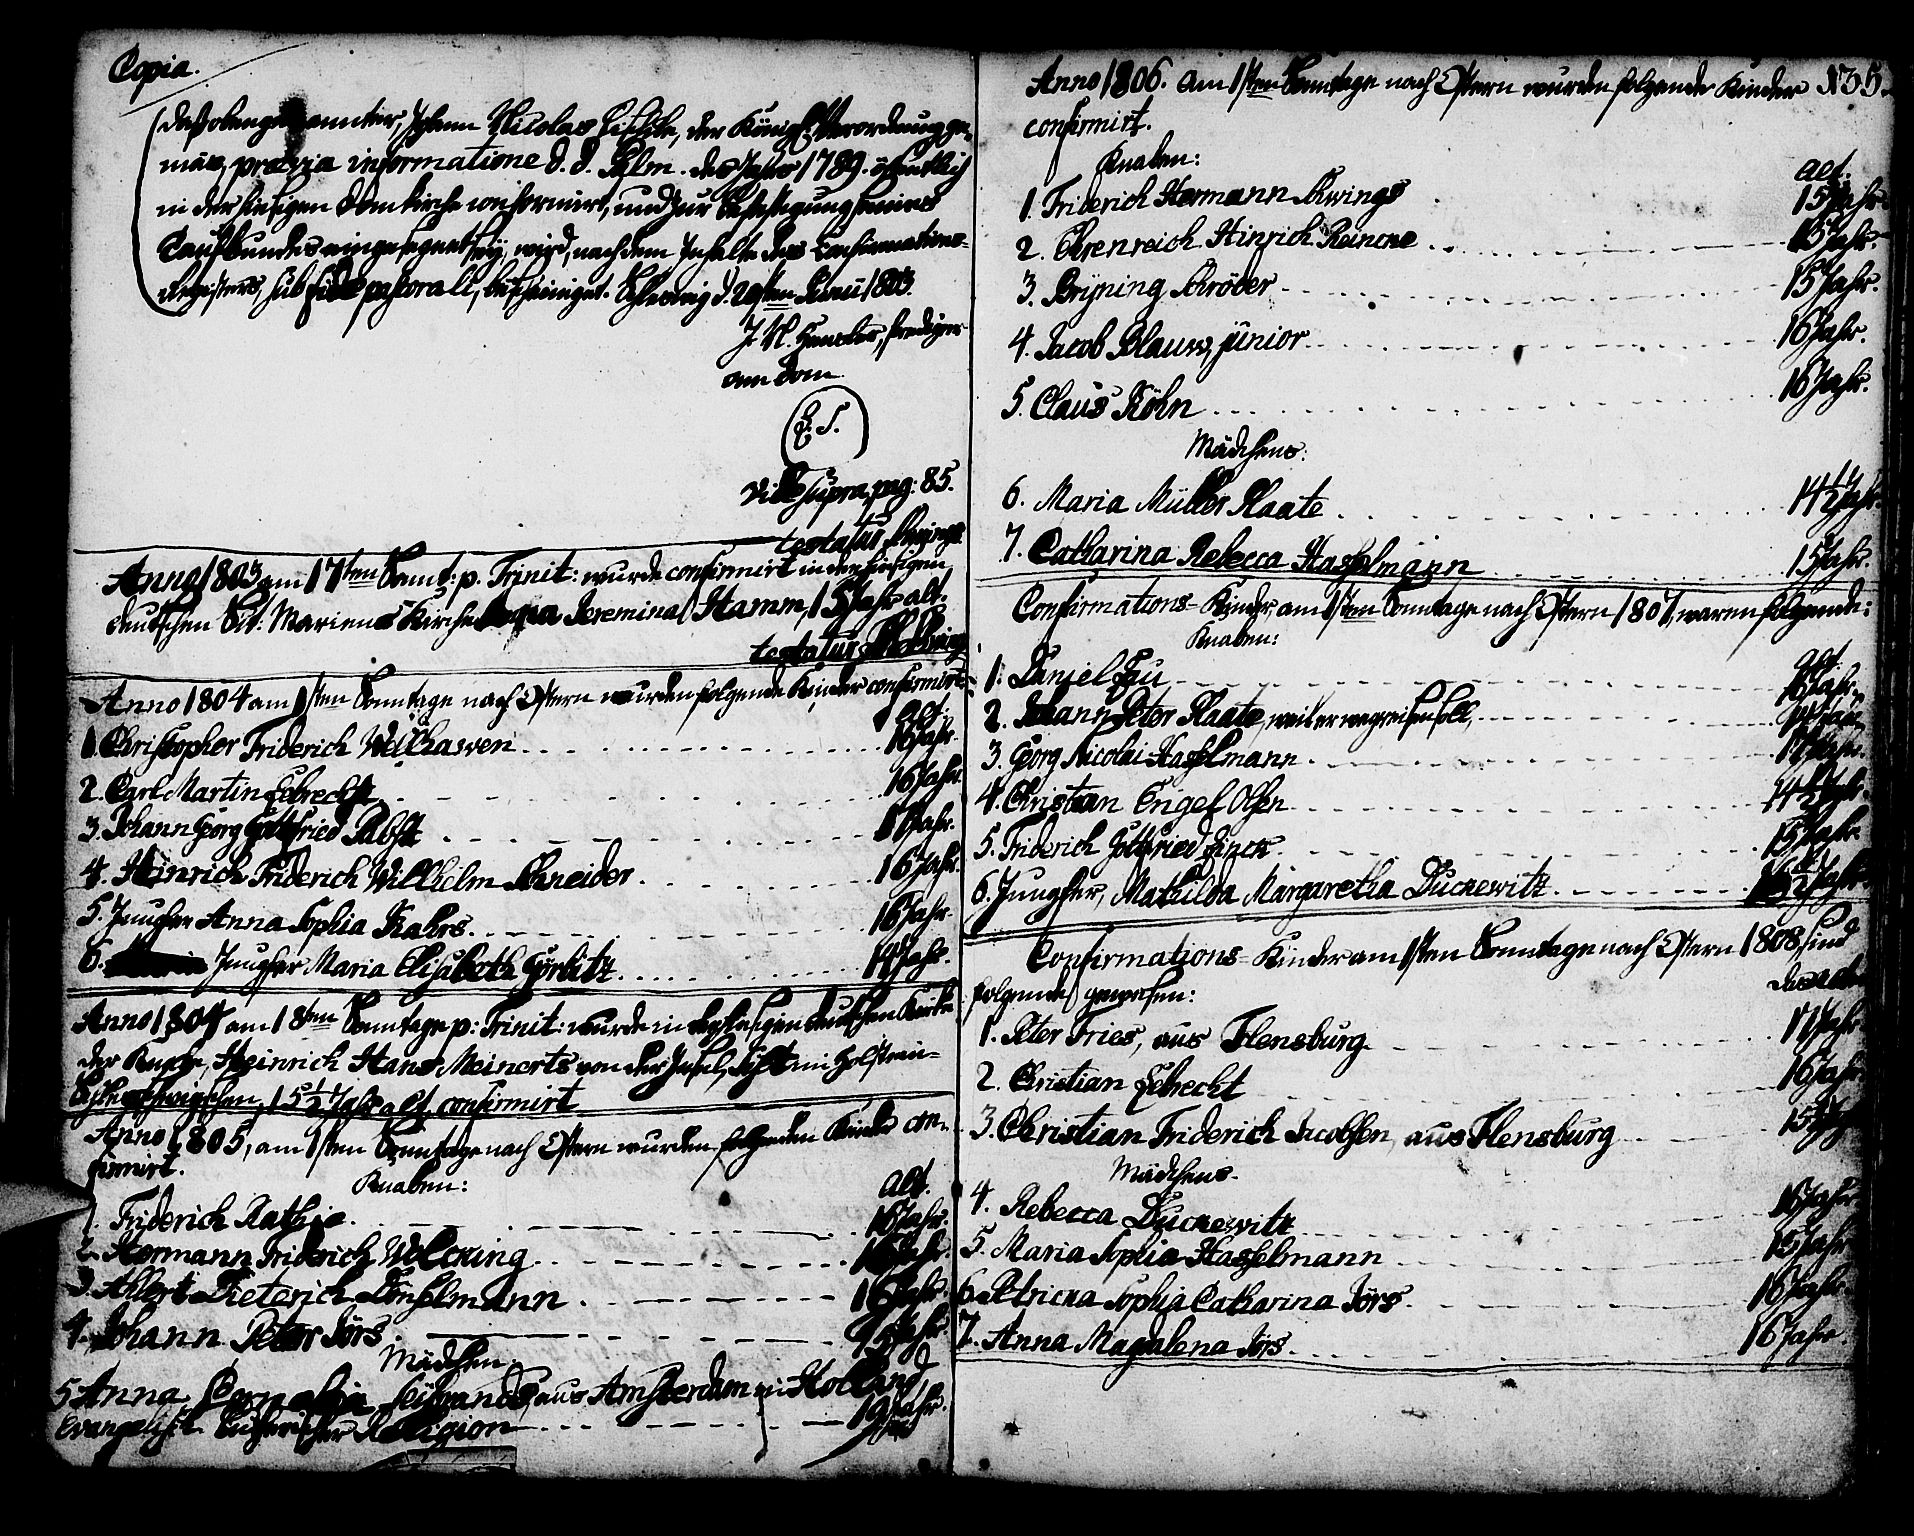 Copia.
Daß obengenannter, Johann Nicolas, der Königl. Verordnung ge-
mäs, prævia informatione d. d. Palm. des Jahrs 1789. öfentlich
in der hiesigen Domkirche confirmirt, und zur Befestigung seines
Taufbundes eingesegnet sey, wird, nach dem Inhalte des Confirmations-
registers, sub fide pastorali, bescheiniget. Schleswig d. 29sten 1803.
J. N. Prediger
am Dom
L. S.
vide supra pag: 85.
testatur
Anno 1803 am 17ten Sonnt: p. Trinit: wurde confirmirt in der hiesigen
deutschen Sct: Mariens Kirche Jeremina Hamm, 15 Jahr alt.
testatur
Anno 1804 am 1sten Sonntage nach Ostern wurden folgende Kinder confirmirt:
alt.
1. Christopher Friderich Welhawen 16 Jahr.
2. Carl Martin Lebrecht 16 Jahr.
3. Johann Georg Gottfried Pabst Jahr.
4. Heinrich Friderich Wilhelm Schneider 16 Jahr.
5. Jungfer Anna Sophia Kahrs 16 Jahr.
6. Jungfer Maria Elisabeth Görlitz 17 Jahr.
Anno 1804 am 18ten Sonntage p: Trinit: wurde in der hiesigen deutschen Kirche
der Knabe, Heinrich Hans Meinerts von der Insel, Sylt im Holstein-
Schleswigschen, 15 1/2 Jahr alt confirmirt
Anno 1805, am 1sten Sonntage nach Ostern wurden folgenden Kinder con-
firmirt.
Knaben: alt.
1. Friderich Rathje 16 Jahr.
2. Hermann Friderich Wölcking 16 Jahr.
3. Allert Dieterich Dönselmann 16 Jahr.
4. Johann Peter Jörs 15 Jahr.
Mädchen
5 Anna Cornelia Sibrands, aus Amsterdam in Holland,
Evangelisch Lutherischer Religion 19 Jahr.
Anno 1806. am 1sten Sonntage nach Ostern wurden folgende Kinder 135.
confirmirt.
Knaben: alt.
1. Friderich Hermann Schwings 15 Jahr.
2. Ehrenreich Hinrich Reincke 15 Jahr.
3. Bryning Schröder 15 Jahr.
4. Jacob Blauw, junior 16 Jahr.
5. Claus Köhn 16 Jahr.
Mädchens:
6. Maria Müller Plaate 14 1/2 Jahr.
7. Catharina Rebecca Hasselmann 15 Jahr.
Confirmations-Kinder, am 1sten Sonntage nach Ostern 1807, waren folgende:
Knaben: alt.
1. Daniel Fau 16 Jahr.
2. Johann Peter Plaate, weil er wegreisen soll, 14 Jahr.
3. Georg Nicolai Hasselmann 17 Jahr.
4. Christian Engel Olsen 14 1/2 Jahr.
5. Friderich Gottfried Finck 15 Jahr.
6. Jungfer, Mathilda Margaretha Duckewitz 16 1/2 Jahr.
Confirmations-Kinder am 1sten Sonntage nach Ostern 1808, sind
folgende gewesen:
1. Peter Fries, aus Flensburg 17 Jahr.
2. Christian Lebrecht 16 Jahr.
3. Christian Friderich Jacobsen, aus Flensburg 15 Jahr
Mädchens.
4. Rebecca Duckewitz 16 Jahr
5. Maria Sophia Hasselmann 15 Jahr
6. Petricka Sophia Catharina Jörs 16 Jahr
7. Anna Magdalena Jörs 16 Jahr